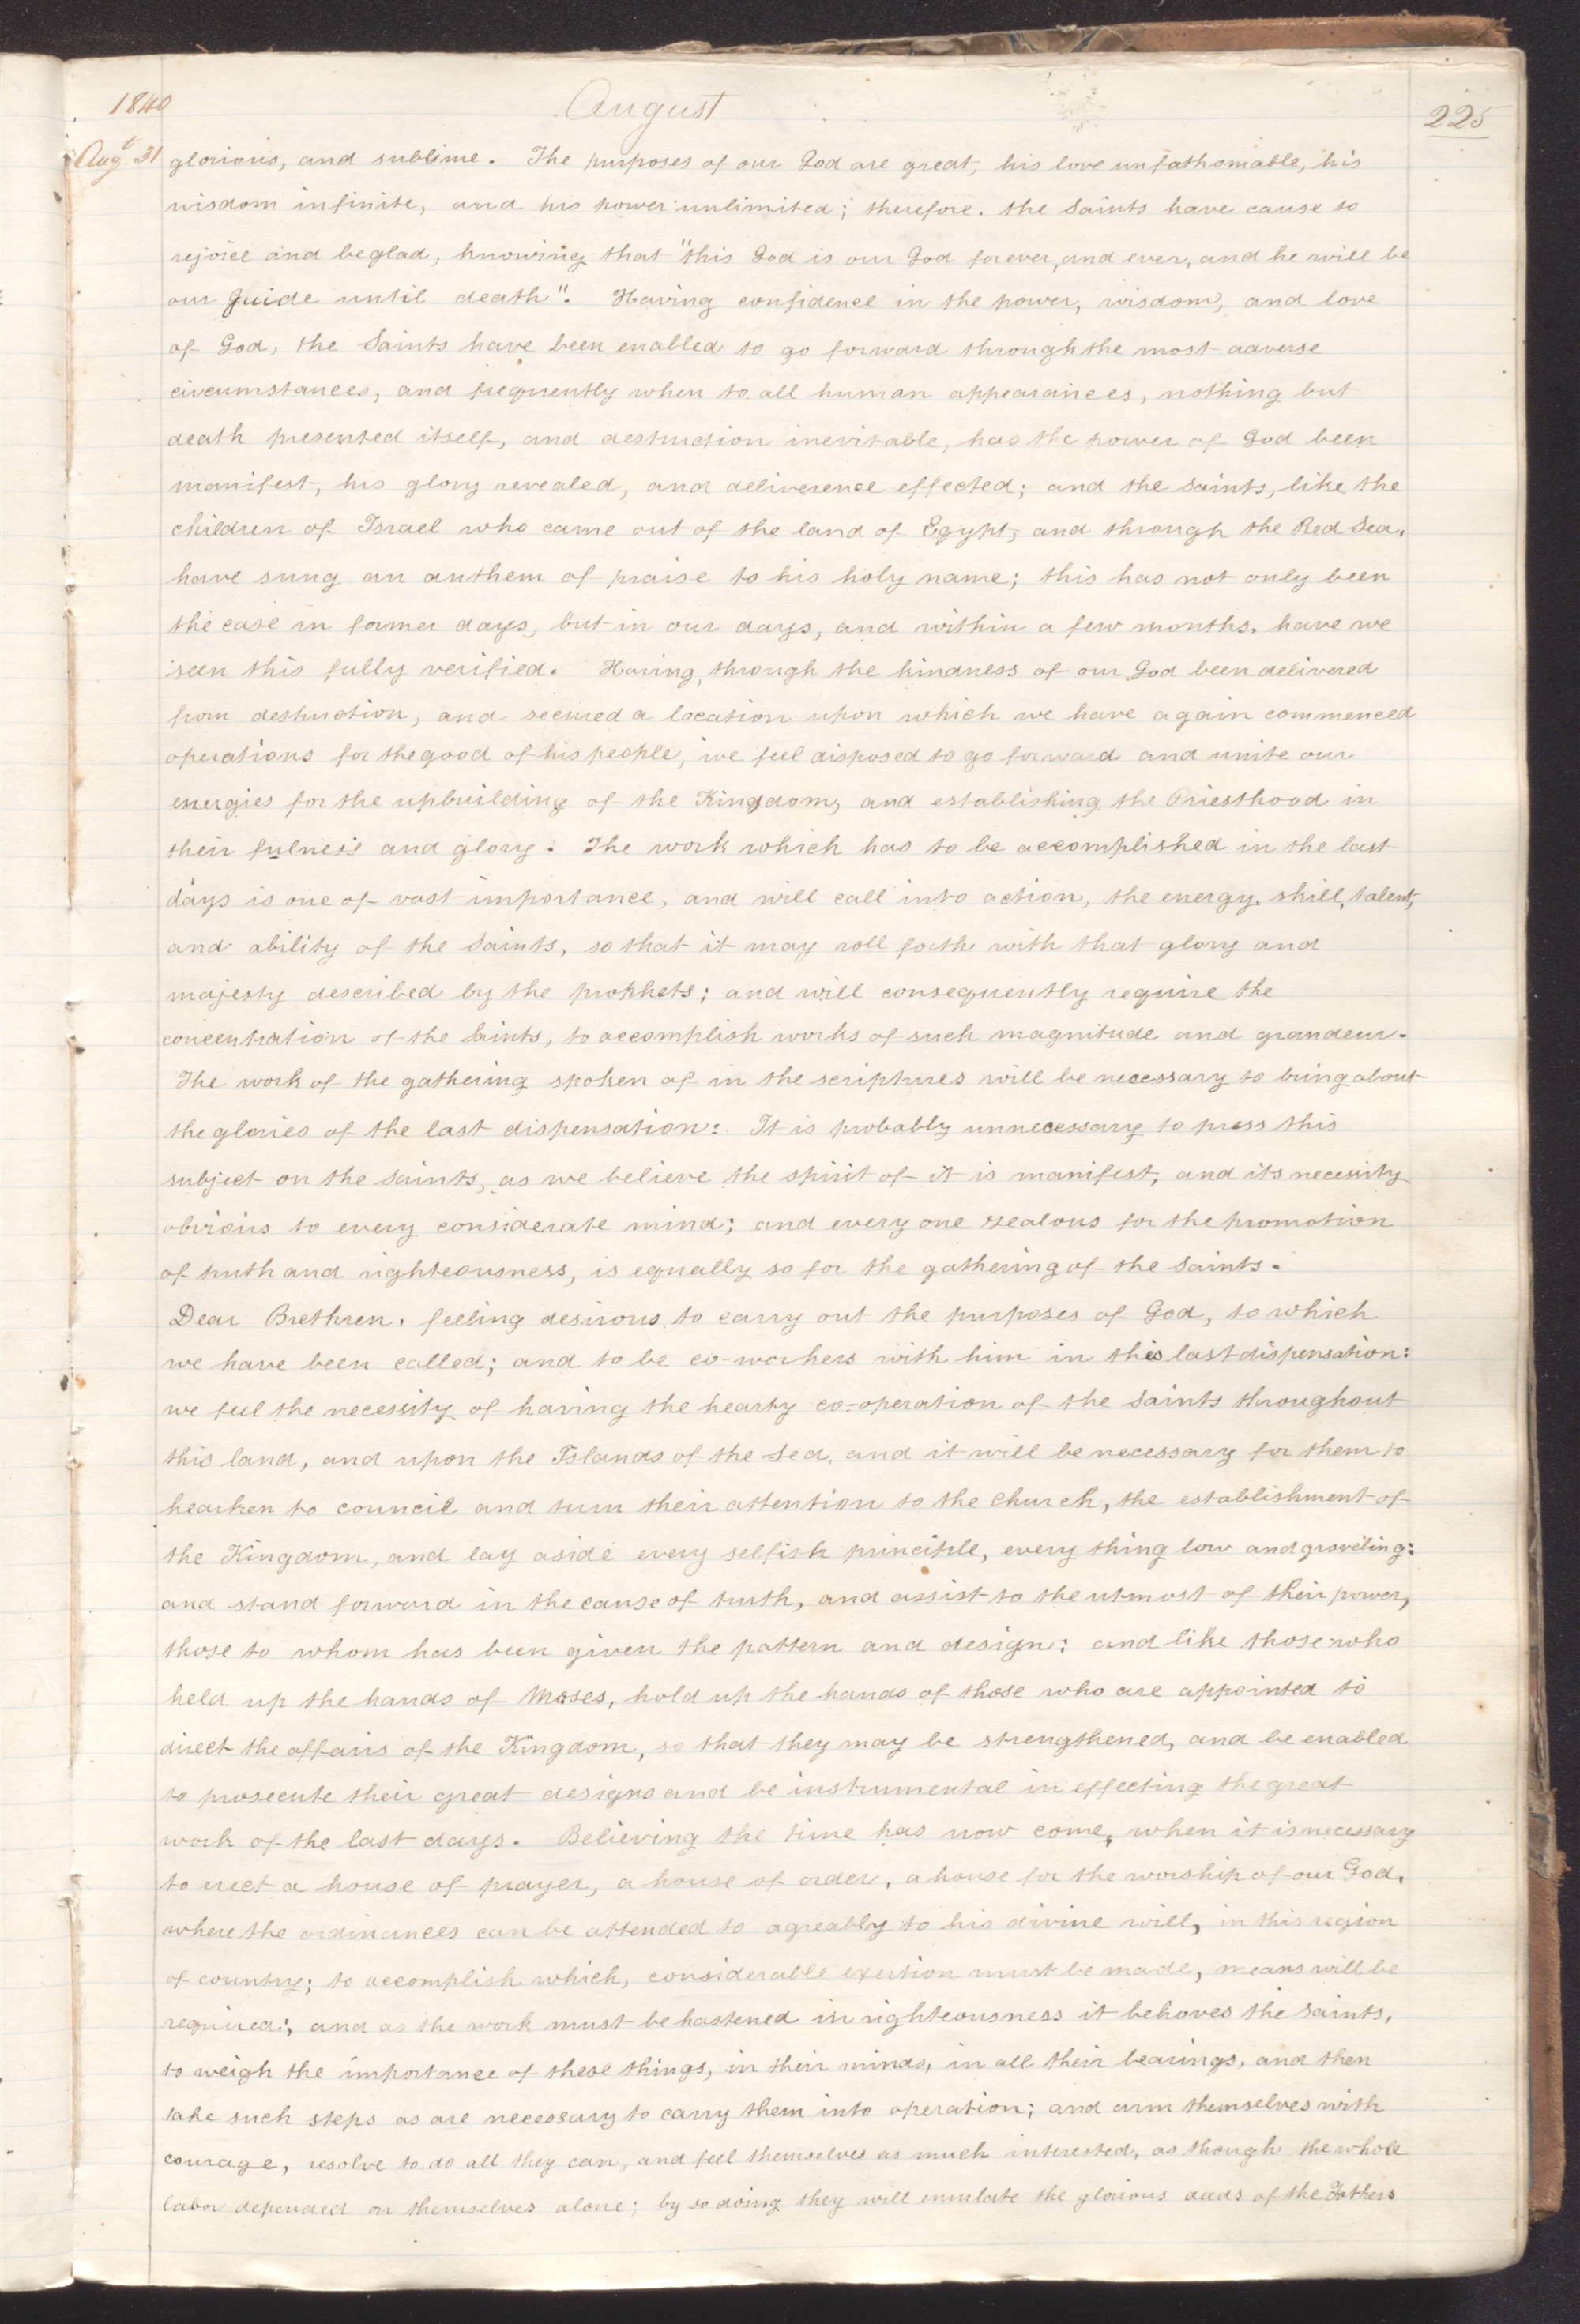 1840 August 225
Augt. 31 glorious, and sublime. The purposes of our God are great, his love unfathomable, his
wisdom infinite, and his power unlimited; therefore. the Saints have cause to
rejoice and be glad, knowing that "this God is our God forever, and ever, and he will be
our Guide until death". Having confidence in the power, wisdom, and love
of God, the Saints have been enabled to go forward through the most adverse
circumstances, and frequently when to all human appearances, nothing but
death presented itself, and destruction inevitable, has the power of God been
manifest, his glory revealed, and deliverence effected; and the Saints, like the
children of Israel who came out of the land of Egypt, and through the Red Sea,
have sung an anthem of praise to his holy name; this has not only been
the case in former days, but in our days, and within a few months, have we
seen this fully verified. Having, through the kindness of our God been delivered
from destruction, and secured a location upon which we have again commenced
operations for the good of his people, we feel disposed to go forward and unite our
energies for the upbuilding of the Kingdom, and establishing the Priesthood in
their fulness and glory. The work which has to be accomplished in the last
days is one of vast importance, and will call into action, the energy, skill, talent,
and ability of the Saints, so that it may roll forth with that glory and
majesty described by the prophets; and will consequently require the
concentration of the Saints, to accomplish works of such magnitude and grandeur.
The work of the gathering spoken of in the scriptures will be necessary to bring about
the glories of the last dispensation: It is probably unnecessary to press this
subject on the Saints, as we believe the spirit of it is manifest, and its necessity
obvious to every considerate mind; and every one zealous for the promotion
of truth and righteousness, is equally so for the gathering of the Saints.
Dear Brethren, feeling desirous to carry out the purposes of God, to which
we have been called; and to be co-workers with him in this last dispensation:
we feel the necessity of having the hearty co-operation of the Saints throughout
this land, and upon the Islands of the Sea, and it will be necessary for them to
hearken to council and turn their attention to the Church, the establishment of
the Kingdom, and lay aside every selfish principle, every thing low and groveling:
and stand forward in the cause of truth, and assist to the utmost of their power,
those to whom has been given the pattern and design: and like those who
held up the hands of Moses, hold up the hands of those who are appointed to
direct the affairs of the Kingdom, so that they may be strengthened, and be enabled
to prosecute their great designs and be instrumental in effecting the great
work of the last days. Believing the time has now come, when it is necessary
to erect a house of prayer, a house of order, a house for the worship of our God,
where the ordinances can be attended to agreably to his divine will, in this region
of country; to accomplish which, considerable exertion must be made, means will be
required:, and as the work must be hastened in righteousness it behoves the Saints,
to weigh the importance of these things, in their minds, in all their bearings, and then
take such steps as are necessary to carry them into operation; and arm themselves with
courage, resolve to do all they can, and feel themselves as much interested, as though the whole
labor depended on themselves alone; by so doing they will emulate the glorious deeds of the Fathers